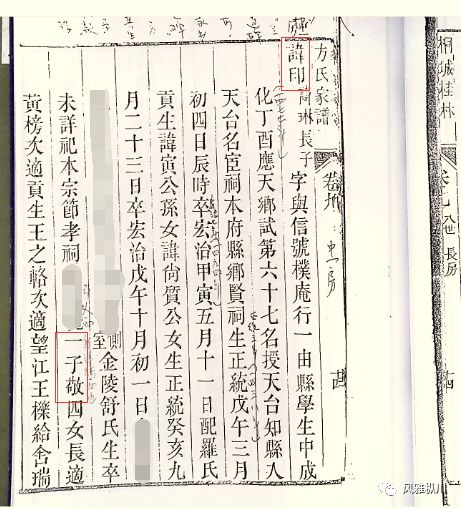 桐城桂林
八世 長房
方氏家譜
諱印 諱琳長子 字與信號樸庵行一由縣學生中成
化丁酉應天鄉試第六十七名授天台知縣入
天台名臣祠本府縣鄉賢祠生正統戊午三月
初四日辰時卒宏治甲寅五月十一日配羅氏
貢生諱寅公孫女諱尚質公女生正統癸亥九
月二十三日卒宏治戊午十月初一日
側室金陵舒氏生卒
未詳祀本宗節孝祠 一子敬四女長適
黃榜次適貢生王之輅次適望江王櫟給舍瑞